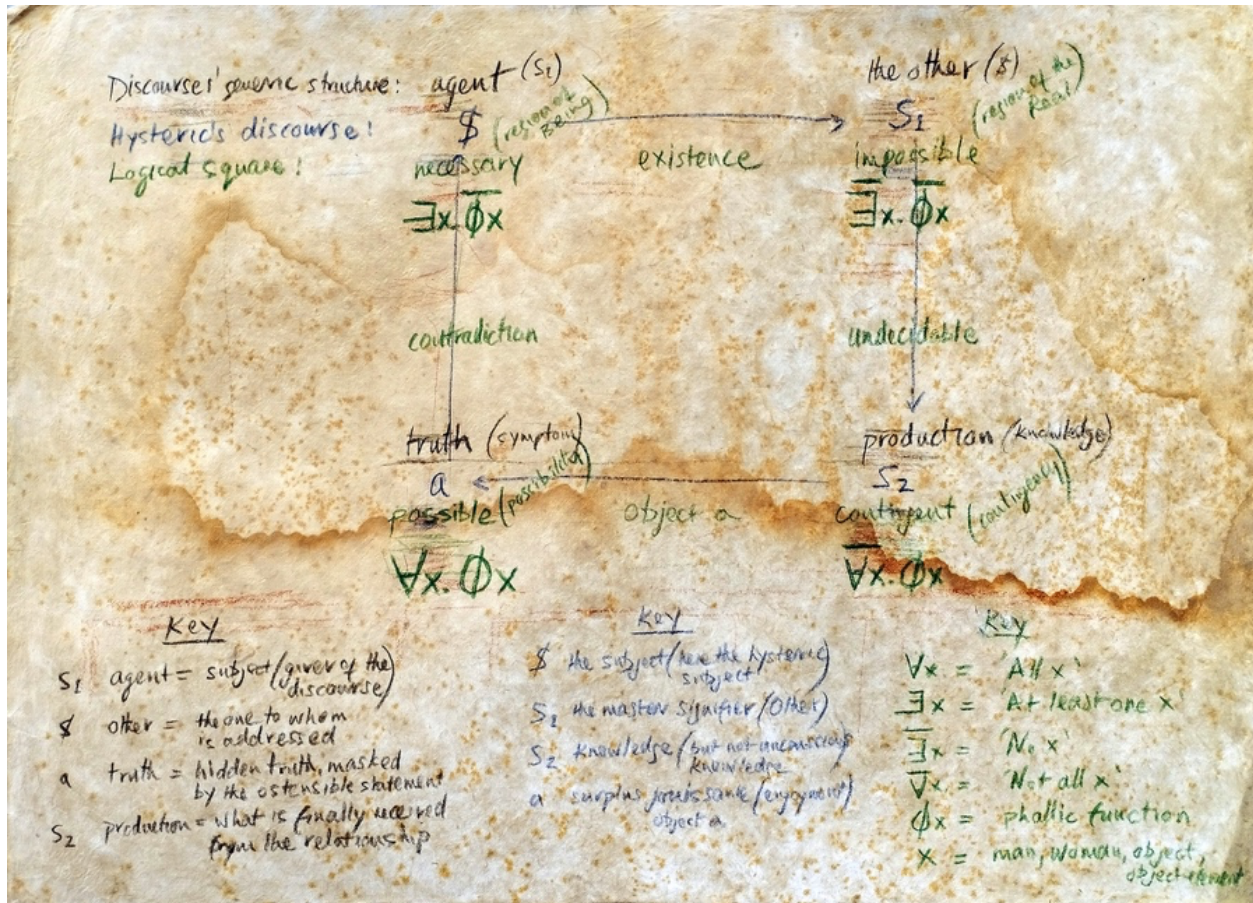 Discourses' generic structure: agent (S₁) the other ($)
Hysteric's discourse: $ (region of Being) S₁ (region of the Real)
Logical square: necessary existence impossible
∃x.Φ̅x ∃̅x.Φ̅x
contradiction undecidable
truth (symptom) production (knowledge)
a S₂
possible (possibility) object a contingent (contingency)
∀x.Φx ∀̅x.Φx
Key
S₁ agent = subject (giver of the
discourse)
$ other = the one to whom
is addressed
a truth = hidden truth, masked
by the ostensible statement
S₂ production = what is finally received
from the relationship
Key
$ the subject (here the hysteric
subject)
S₁ the master signifier (Other)
S₂ knowledge (but not unconscious
knowledge
a surplus jouissance (enjoyment)
object a
Key
∀x = 'All x'
∃x = 'At least one x'
∃̅x = 'No x'
∀̅x = 'Not all x'
Φx = phallic function
x = man, woman, object,
object element